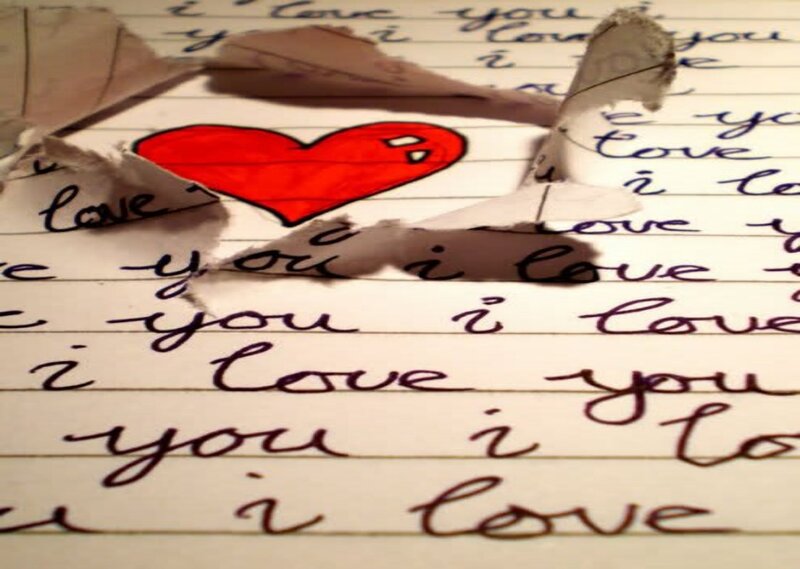 i love you i
y i love you
i love
you
e yo
love
i lo
love
love y
e you i love y
e you i love
i love you
you i lo
u i love